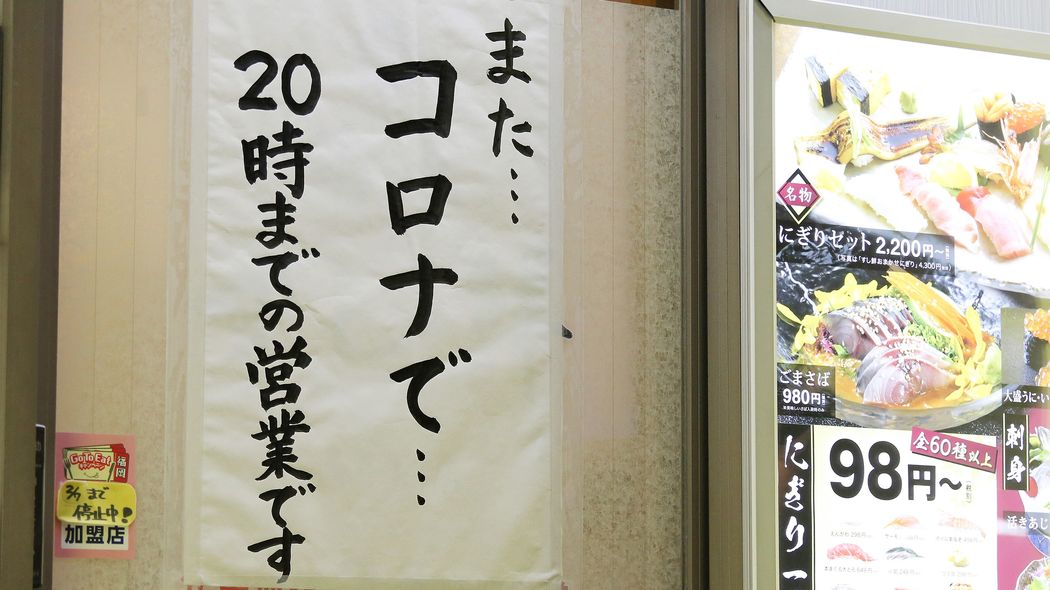 また…
コロナで…
20時までの営業です
Go To Eat
キャンペーン
福岡
まで
停止中!
加盟店
名物
にぎりセット2,200円〜
(写真は「すし鮮おまかせにぎり」4,300円
ごまさば
980円
大盛うに・い
刺身
活きあじ
にぎり一
全60種以上
98円〜